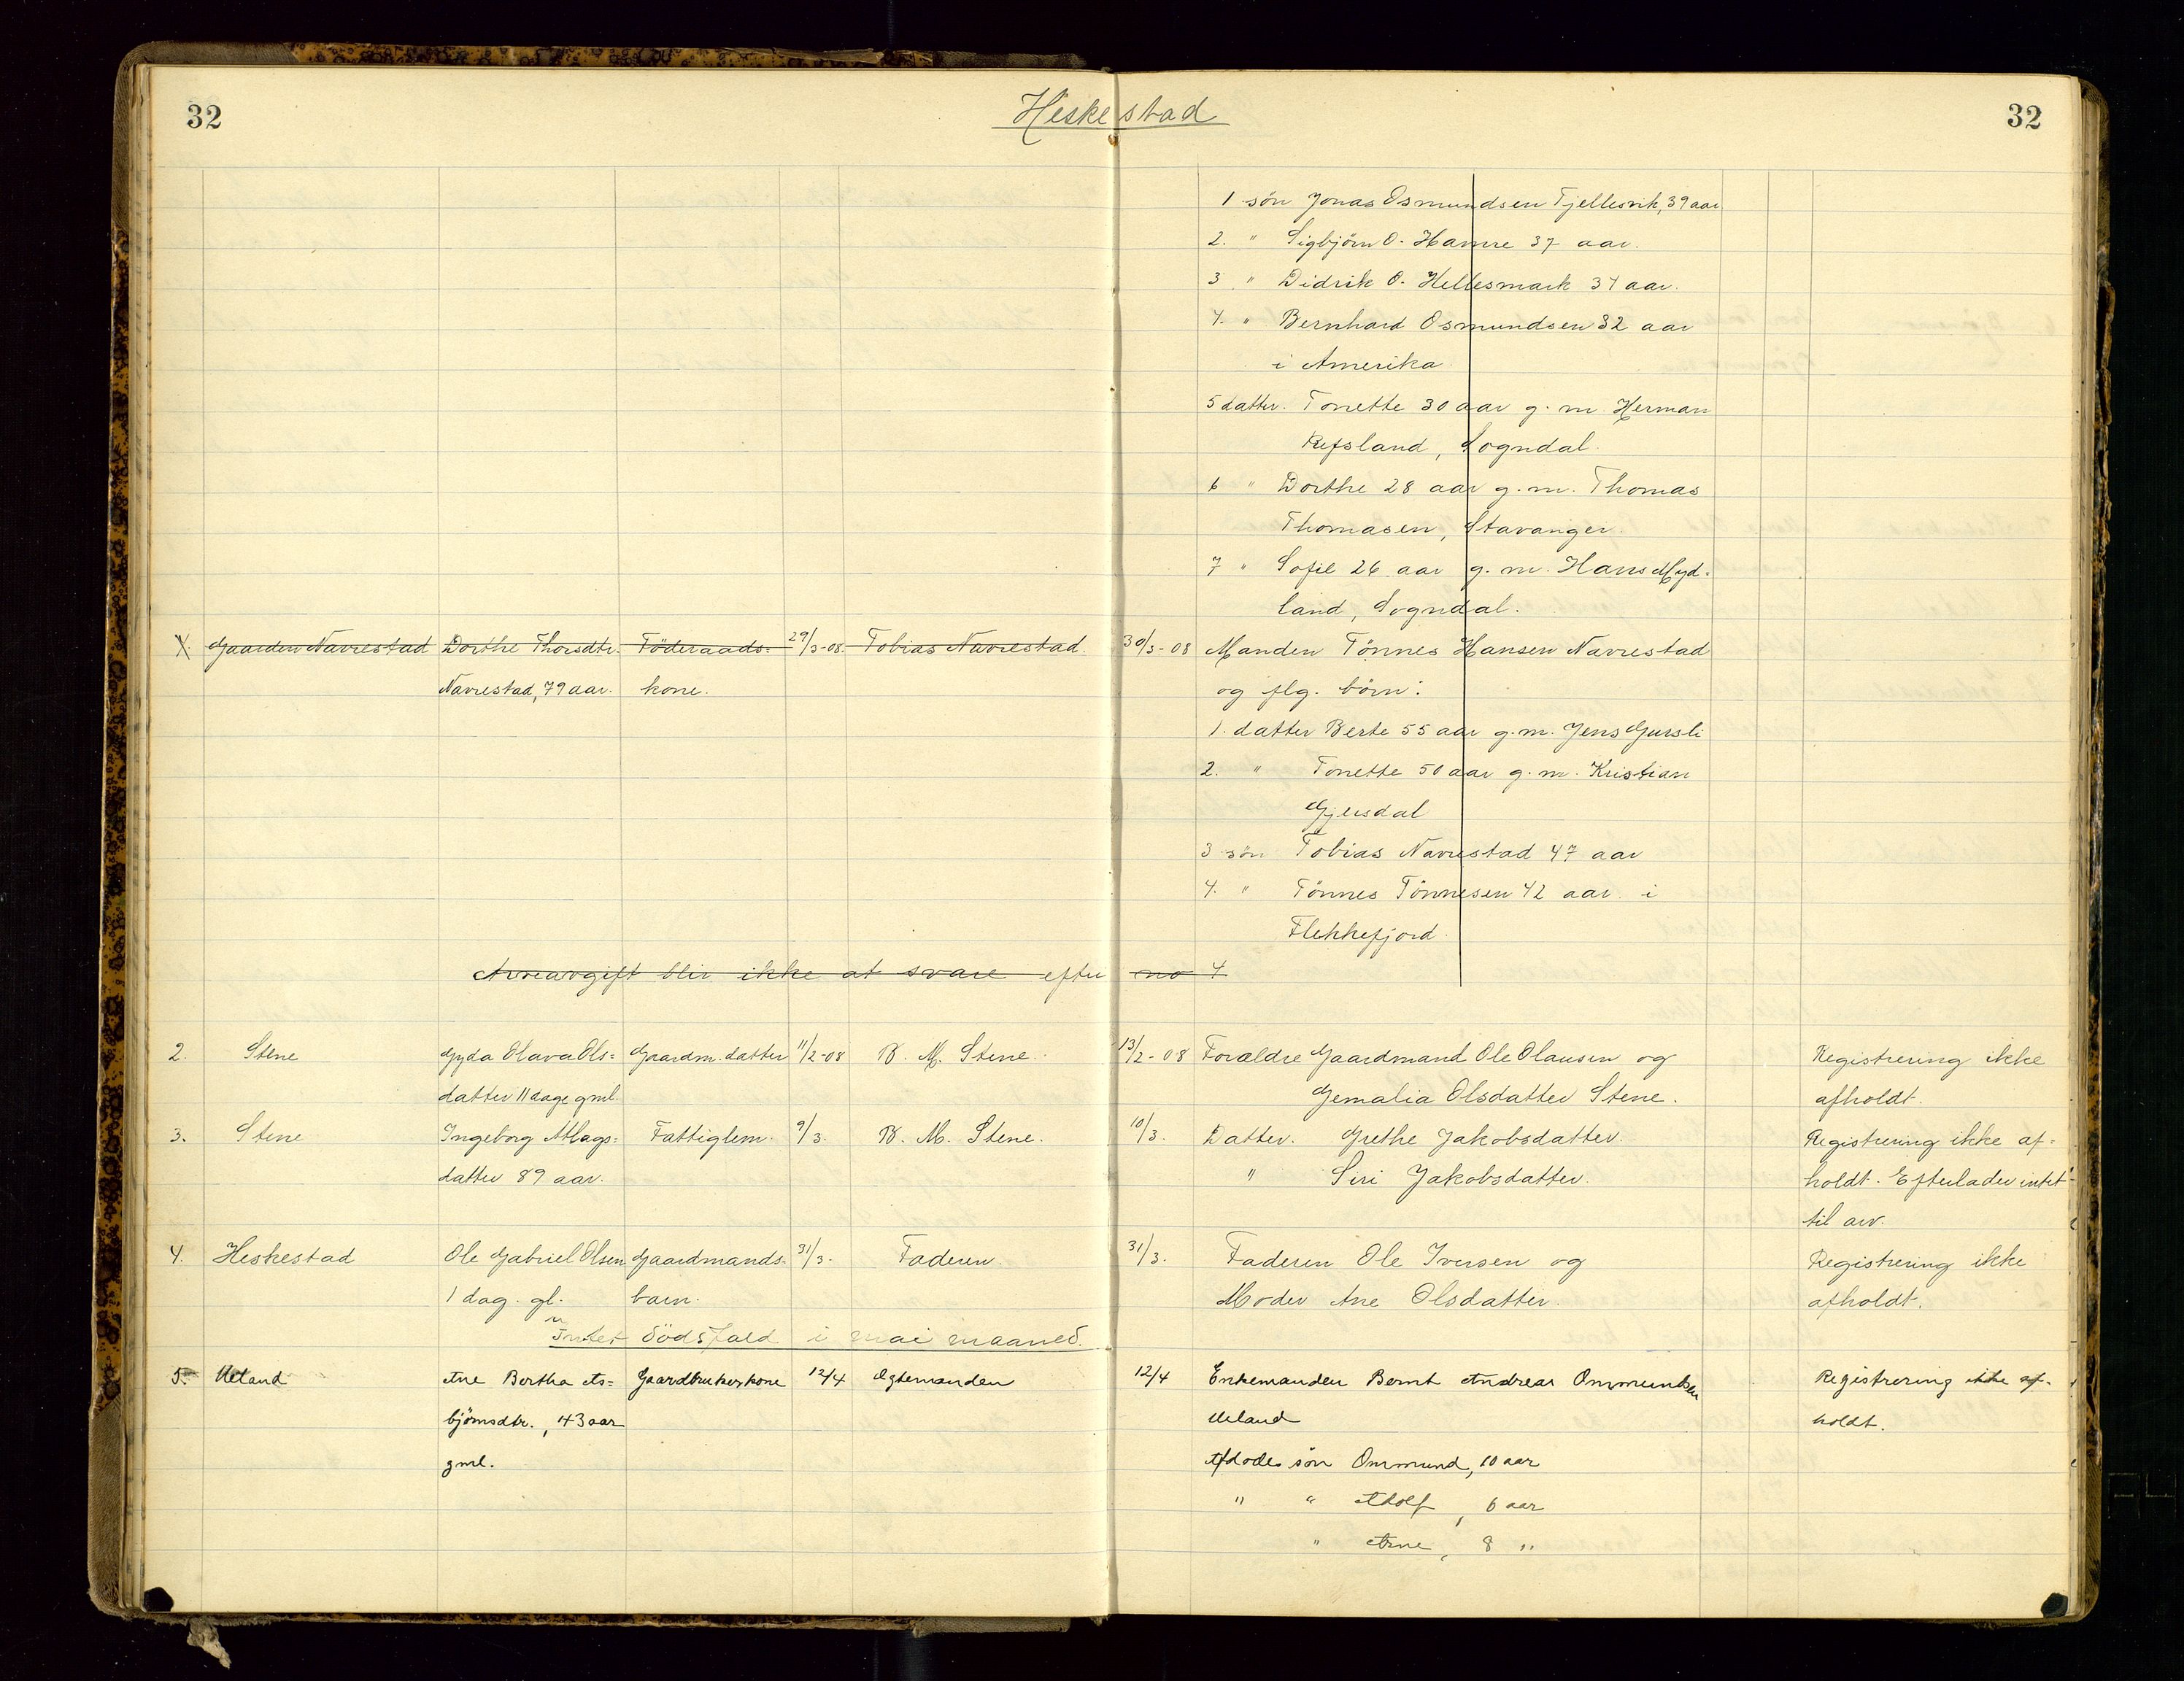 32
Heskestad
32
1 søn Jonas Osmundsen Tjellesvik, 39 aar
2. " Sigbjörn O. Hamre 37 aar.
3 " Didrik O. Hellesmark 34 aar.
4. " Bernhard Osmundsen 32 aar
i Amerika
5 datter. Tonette 30 aar g. m. Herman
Refsland, Sogndal.
6 " Dorthe 28 aar g. m. Thomas
Thomasen, Stavanger.
7 " Sofie 26 aar g. m. Hans Myd-
land, Sogndal.
Gaarden Navrestad Dorthe Thorsdtr. Föderaads= 29/3-08. Tobias Navrestad. 30/3-08 Manden Tönnes Hansen Navrestad
Navrestad, 79 aar. kone. og flg. börn:
1. datter Berte 55 aar g. m. Jens Gursli
2. " Tonette 50 aar g. m. Kristian
Gjersdal
3 søn Tobias Navrestad 47 aar
4. " Tönnes Tönnesen 42 aar. i
Flekkefjord.
Arveavgift blir ikke at svare efter no 4
2. Stene Gyda Olava Ols= Gaardm. datter 11/2-08 B. M. Stene. 13/2-08 Forældre Gaardmand Ole Olausen og Registrering ikke
datter 11 dage gml. Gemalia Olsdatter Stene. afholdt.
3. Stene Ingeborg Atlags= Fattiglem. 9/3. B. M. Stene. 10/3. Datter. Grethe Jakobsdatter. Registrering ikke af-
datter 89 aar. " Siri Jakobsdatter. holdt. Efterlader intet
til arv.
4. Heskestad Ole Gabriel Olsen Gaardmands- 31/3. Faderen. 31/3. Faderen Ole Iversen og Registrering ikke
1 dag. gl. barn. Moder Ane Olsdatter. afholdt.
Intet Dödsfald i mai maaned.
5. Ueland Ane Bertha As= Gaardbrukerkone 12/4 Egtemanden 12/4 Enkemanden Bernt Andreas Ommundsen Registrering ikke af-
björnsdtr., 43 aar Ueland holdt.
gml. Afdødes sön Ommund, 10 aar
" " Adolf, 6 aar
" Arne, 8 "